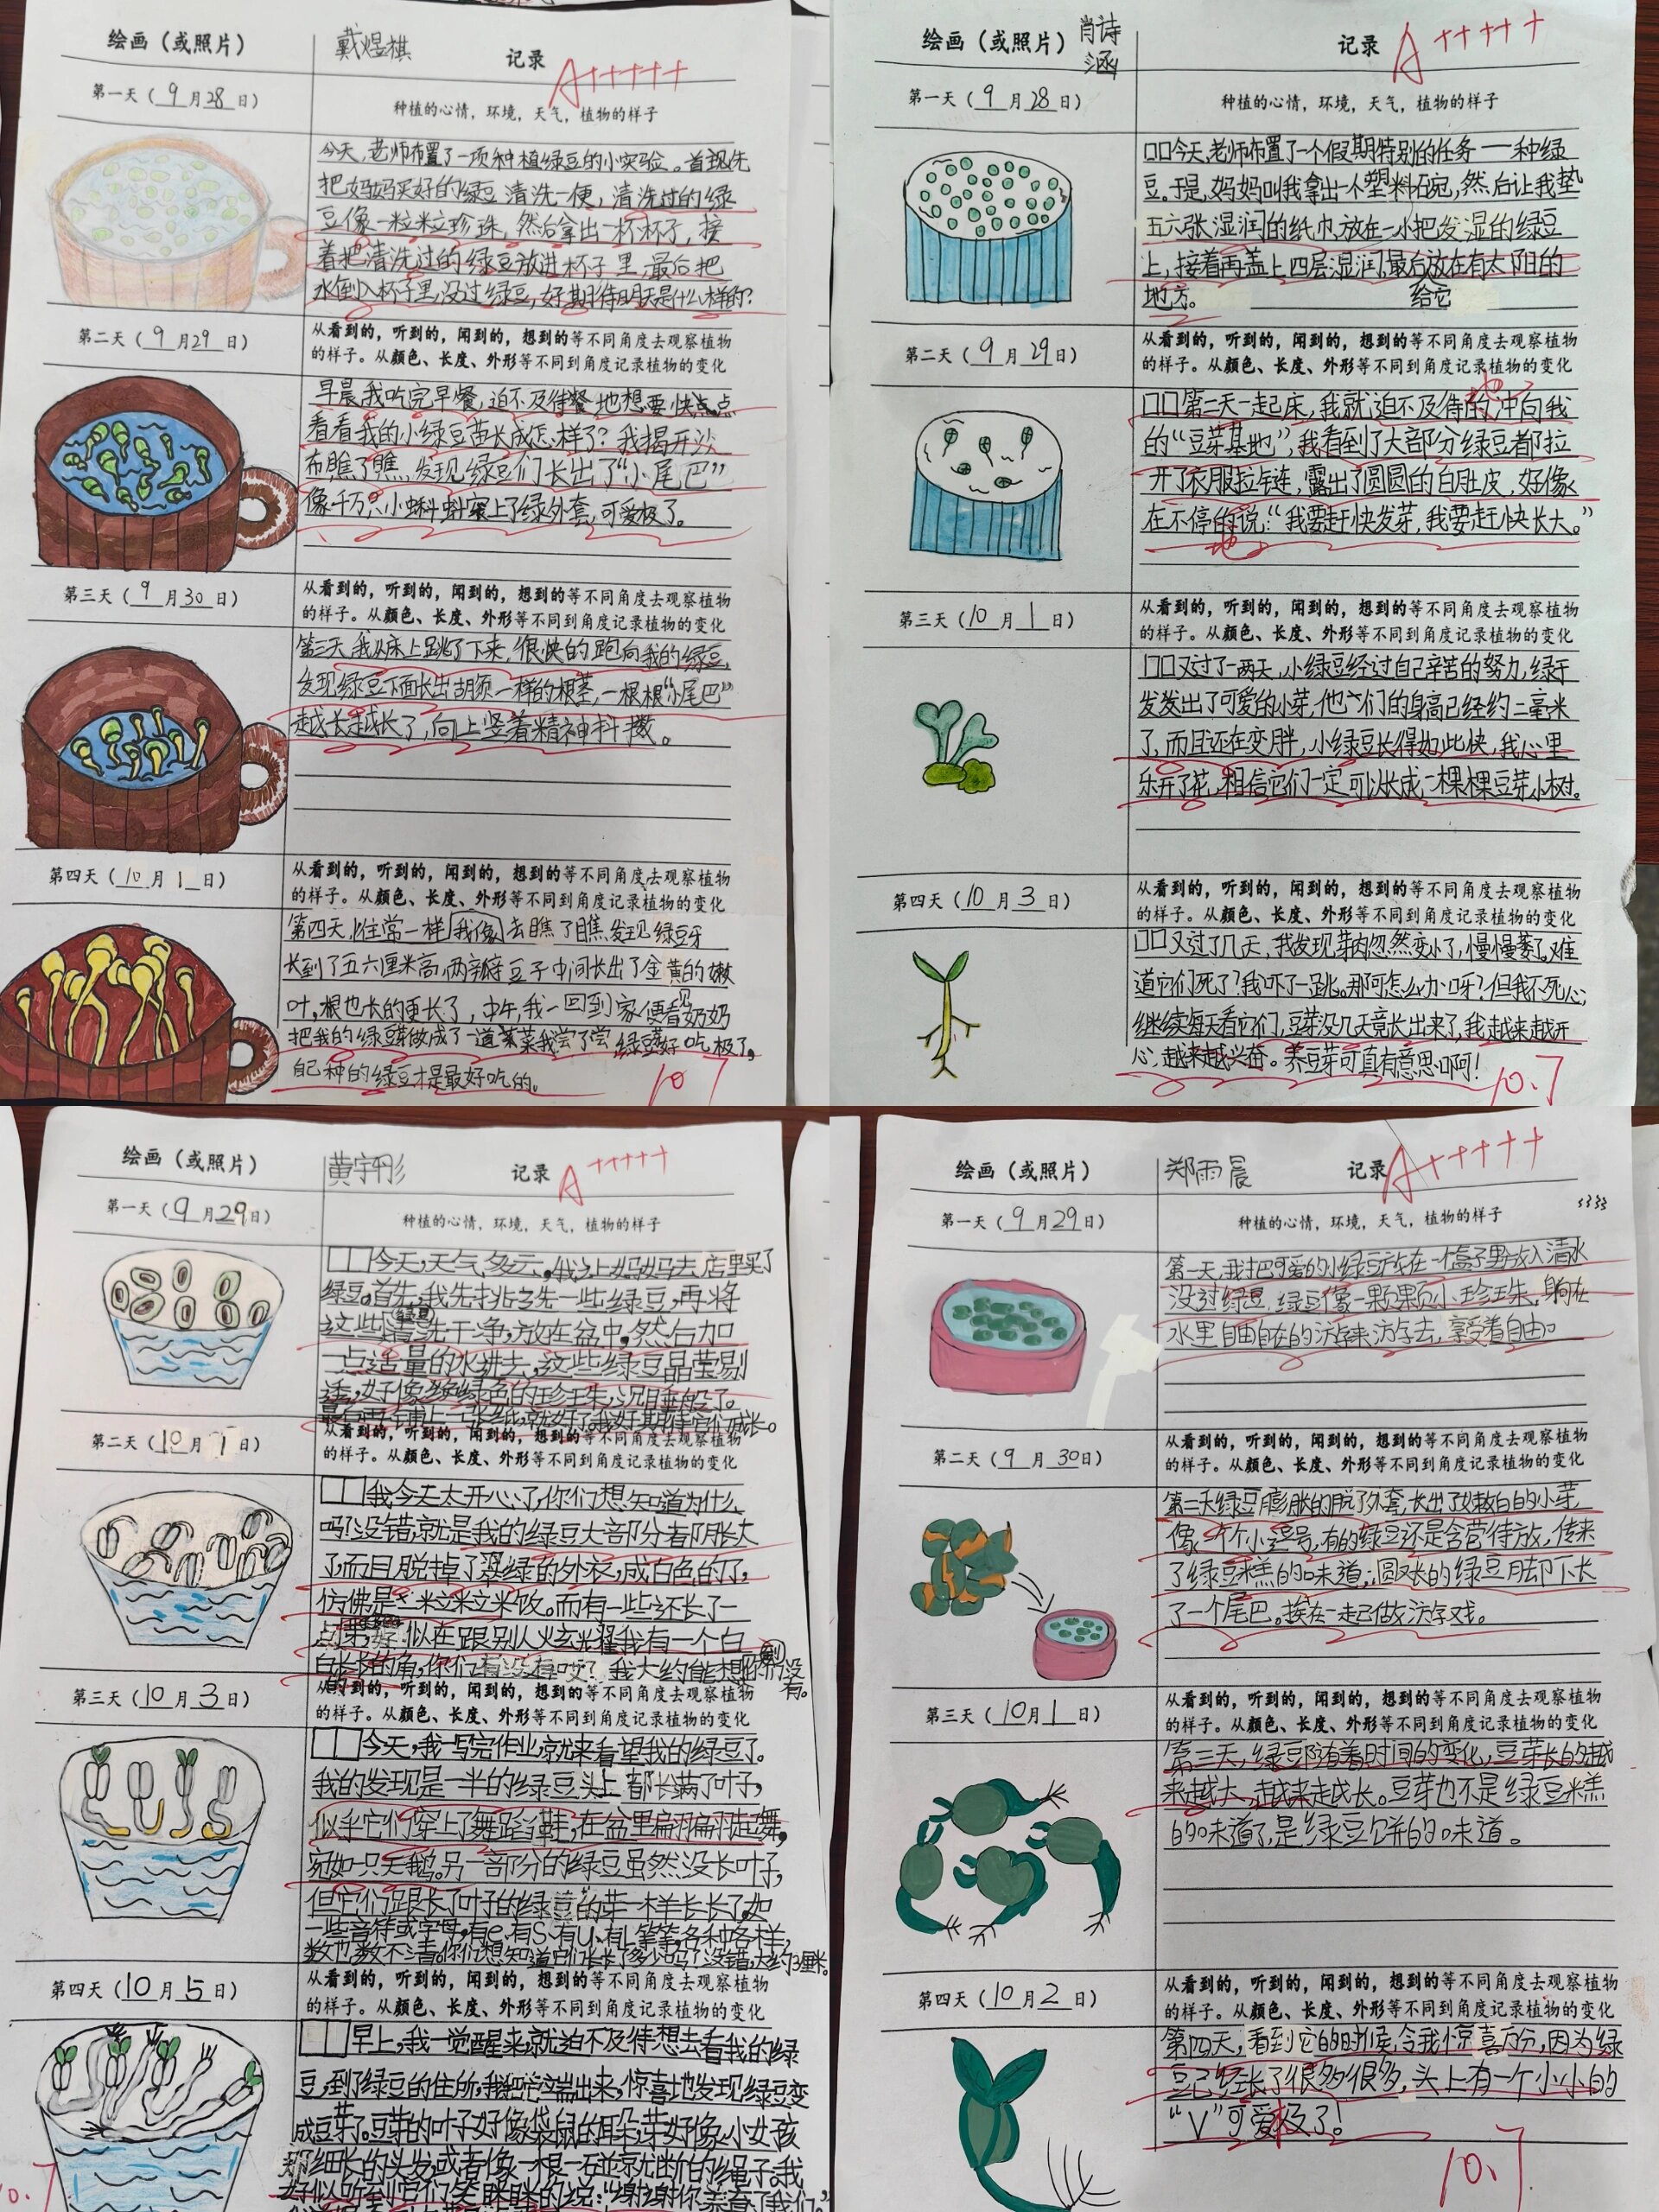 绘画（或照片）
戴煜棋
记录
A+++++
第一天（9月28日）
种植的心情，环境，天气，植物的样子
今天，老师布置了一项种植绿豆的小实验。首现先
把妈妈买好的绿豆清洗一便，清洗过的绿
豆像一粒粒珍珠，然后拿出一杯杯子，接
着把清洗过的绿豆放进杯子里，最后把
水倒入杯子里，没过绿豆，好期待明天是什么样的？
第二天（9月29日）
从看到的，听到的，闻到的，想到的等不同角度去观察植物
的样子。从颜色、长度、外形等不同到角度记录植物的变化
早晨我吃完早餐，迫不及待地想要快点点
看看我的小绿豆苗长成怎样了？我揭开沙
布瞧了瞧，发现绿豆们长出了“小尾巴”
像千万只小蝌蚪穿上了绿外套，可爱极了。
第三天（9月30日）
从看到的，听到的，闻到的，想到的等不同角度去观察植物
的样子。从颜色、长度、外形等不同到角度记录植物的变化
第三天，我从床上跳了下来，很快的跑向我的绿豆，
发现绿豆下面长出胡须一样的根茎，一根根“小尾巴”
越长越长了，向上竖着精神抖擞。
第四天（10月1日）
从看到的，听到的，闻到的，想到的等不同角度去观察植物
的样子。从颜色、长度、外形等不同到角度记录植物的变化
第四天，往常一样我像去瞧了瞧，发现绿豆牙
长到了五六厘米高，两瓣豆子中间长出了金黄的嫩
叶，根也长的更长了，中午，我一回到家便看见奶奶
把我的绿豆芽做成了一道菜我尝了尝，绿豆芽好吃极了，
自己种的绿豆才是最好吃的。
10.7
绘画（或照片）
肖诗涵
记录
A+++++
第一天（9月28日）
种植的心情，环境，天气，植物的样子
今天，老师布置了一个假期特别的任务——种绿
豆。于是，妈妈叫我拿出一个塑料碗，然后让我垫
五六张湿润的纸巾，放在一小把发湿的绿豆
上，接着再盖上四层湿润，最后放在有太阳的
地方。
给它
第二天（9月29日）
从看到的，听到的，闻到的，想到的等不同角度去观察植物
的样子。从颜色、长度、外形等不同到角度记录植物的变化
第二天一起床，我就迫不及待的冲向我
地
的“豆芽基地”，我看到了大部分绿豆都拉
开了衣服拉链，露出了圆圆的白肚皮，好像
在不停的说：“我要赶快发芽，我要赶快长大。”
地
第三天（10月1日）
从看到的，听到的，闻到的，想到的等不同角度去观察植物
的样子。从颜色、长度、外形等不同到角度记录植物的变化
又过了一两天，小绿豆经过自己辛苦的努力，绿于
发发出了可爱的小芽，他们的身高已经约二毫米
了，而且还在变胖，小绿豆长得如此快，我心里
乐开了花，相信它们一定可以长成一棵棵豆芽小树。
第四天（10月3日）
从看到的，听到的，闻到的，想到的等不同角度去观察植物
的样子。从颜色、长度、外形等不同到角度记录植物的变化
又过了几天，我发现芽肉忽然变小了，慢慢萎了。难
道它们死了？我吓了一跳。那可怎么办呀？但我不死心，
继续每天看它们，豆芽没几天竟长出来了，我越来越开
心，越来越兴奋。养豆芽可真有意思啊！
10.7
绘画（或照片）
黄宇彤
记录
A+++++
第一天（9月29日）
种植的心情，环境，天气，植物的样子
今天，天气多云，我让妈妈去店里买了
绿豆。首先，我先挑选一些绿豆，再将
这些清洗干净，放在盆中，然后加
一点适量的水进去，这些绿豆晶莹剔
透，好像绿色的珍珠，沉睡般了。
最后再铺上一张纸，就好了。我好期待它们成长。
第二天（10月1日）
从看到的，听到的，闻到的，想到的等不同角度去观察植物
的样子。从颜色、长度、外形等不同到角度记录植物的变化
我今天太开心了，你们想知道为什么
吗？没错，就是我的绿豆大部分都胀大
了，而且脱掉了翠绿的外衣，成白色的了，
仿佛是一粒粒米饭。而有一些还长了一
点芽，好似在跟别人炫耀我有一个白
白长长的角，你们有没有哎？我大约能想到你们没
有。
第三天（10月3日）
从看到的，听到的，闻到的，想到的等不同角度去观察植物
的样子。从颜色、长度、外形等不同到角度记录植物的变化
今天，我一写完作业，就来看望我的绿豆了。
我的发现是一半的绿豆头上都长满了叶子，
似乎它们穿上了舞蹈鞋，在盆里扁羽扁羽起舞，
宛如一只天鹅。另一部分的绿豆虽然没长叶子，
但它们跟长了叶子的绿豆的芽一样长长了，如
一些音符或字母，有e、有S、有U、有L等等，各种各样，
数也数不清。你们想知道它们长长了多少吗？没错，大约3厘米。
第四天（10月5日）
从看到的，听到的，闻到的，想到的等不同角度去观察植物
的样子。从颜色、长度、外形等不同到角度记录植物的变化
早上，我一觉醒来，就迫不及待想去看我的绿
豆，到了绿豆的住所，我把它端出来，惊喜地发现绿豆变
成豆芽了。豆芽的叶子好像袋鼠的耳朵，芽好像小女孩
那细长的头发，或者像一根一碰就断的绳子。我
好似听到它们笑眯眯的说：“谢谢你养育了我们。”
0.7
绘画（或照片）
郑雨晨
记录
A+++++
第一天（9月29日）
种植的心情，环境，天气，植物的样子
第一天，我把可爱的小绿豆放在一个盒子里，放入清水
没过绿豆，绿豆像一颗颗小珍珠，躺在
水里自由自在的游来游去，享受着自由。
第二天（9月30日）
从看到的，听到的，闻到的，想到的等不同角度去观察植物
的样子。从颜色、长度、外形等不同到角度记录植物的变化
第二天绿豆膨胀的脱了外套，长出了又嫩白的小芽
像一个个小逗号，有的绿豆还是含苞待放，传来
了绿豆糕的味道，圆滚的绿豆脚下长
了一个尾巴。挨在一起做游戏。
第三天（10月1日）
从看到的，听到的，闻到的，想到的等不同角度去观察植物
的样子。从颜色、长度、外形等不同到角度记录植物的变化
第三天，绿豆随着时间的变化，豆芽长的越
来越大，越来走越长。豆芽也不是绿豆糕
的味道了，是绿豆饼的味道。
第四天（10月2日）
从看到的，听到的，闻到的，想到的等不同角度去观察植物
的样子。从颜色、长度、外形等不同到角度记录植物的变化
第四天，看到它的时候，令我惊喜万分，因为绿
豆已经长了很多很多，头上有一个小小的
“V”可爱极了！
10.7